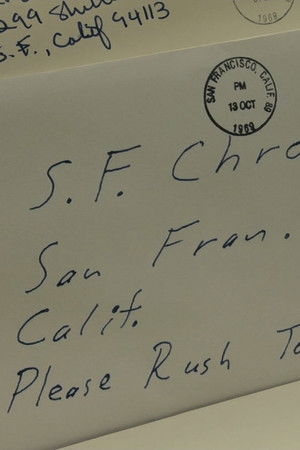 299
S.F., Calif 94113
1969
SAN FRANCISCO, CALIF. 89
PM
13 OCT
1969
S.F. Chro
San Fran.
Calif.
Please Rush To